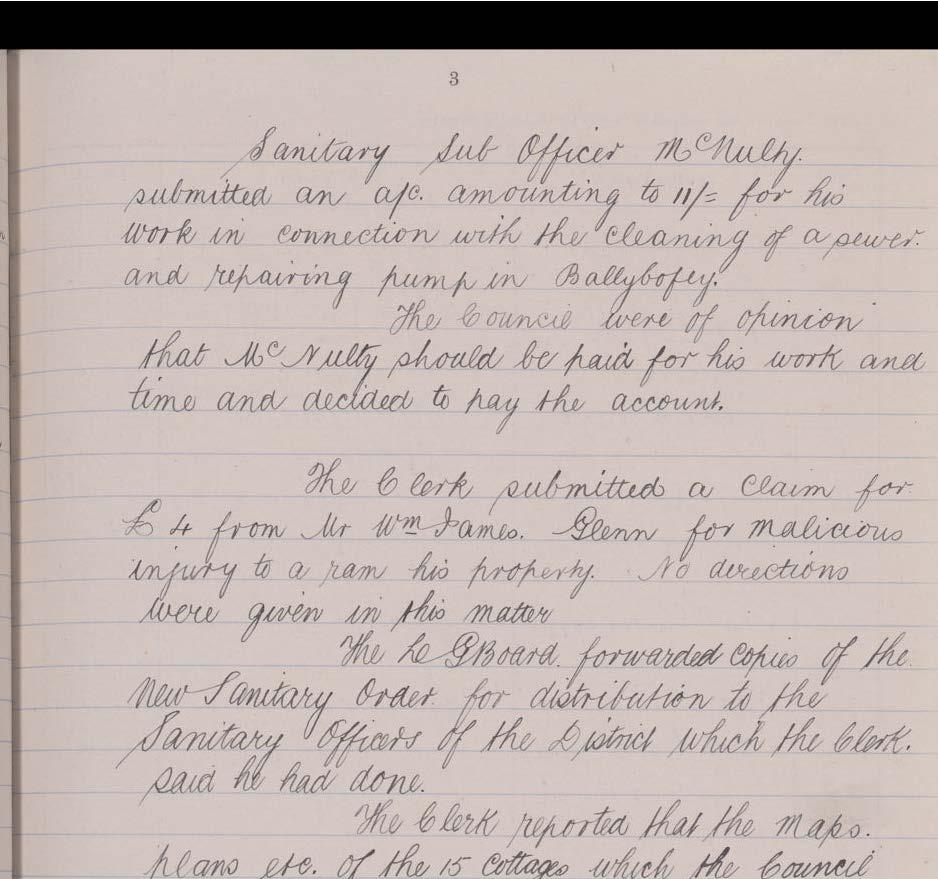 3
Sanitary Sub Officer McNulty.
submitted an a/c. amounting to 11/= for his
work in connection with the cleaning of a sewer.
and repairing pump in Ballybofey.
The Council were of opinion
that Mc Nulty should be paid for his work and
time and decided to pay the account.
The Clerk submitted a claim for
£ 4 from Mr Wm James. Glenn for malicious
injury to a ram his property. No directions
were given in this matter
The L G Board. forwarded copies of the.
New Sanitary Order. for distribution to the
Sanitary Officers of the District which the Clerk.
said he had done.
The Clerk reported that the maps.
plans etc. of the 15 cottages which the Council